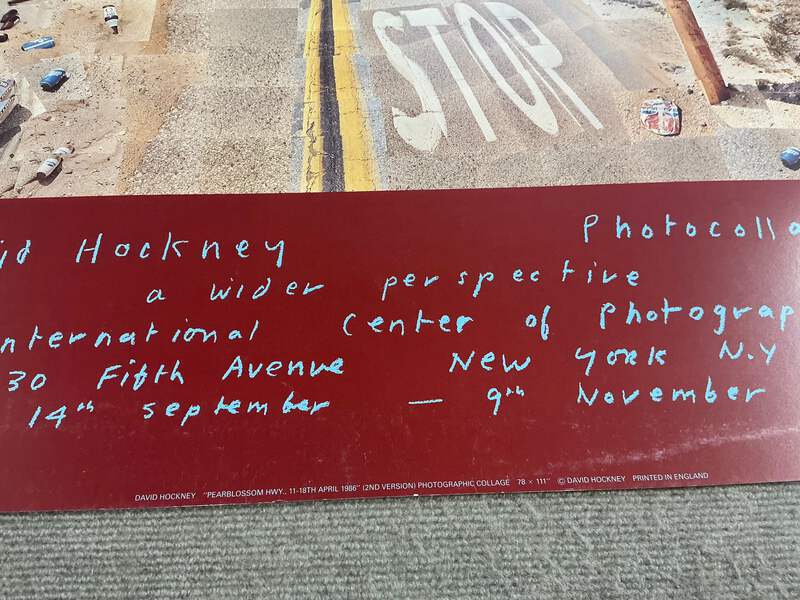 STOP
Hockney Photocolla
a wider perspective
nternational Center of Photograp
30 Fifth Avenue New York N.Y
14th september — 9th November
DAVID HOCKNEY "PEARBLOSSOM HWY., 11-18TH APRIL 1986" (2ND VERSION) PHOTOGRAPHIC COLLAGE 78 × 111" © DAVID HOCKNEY PRINTED IN ENGLAND